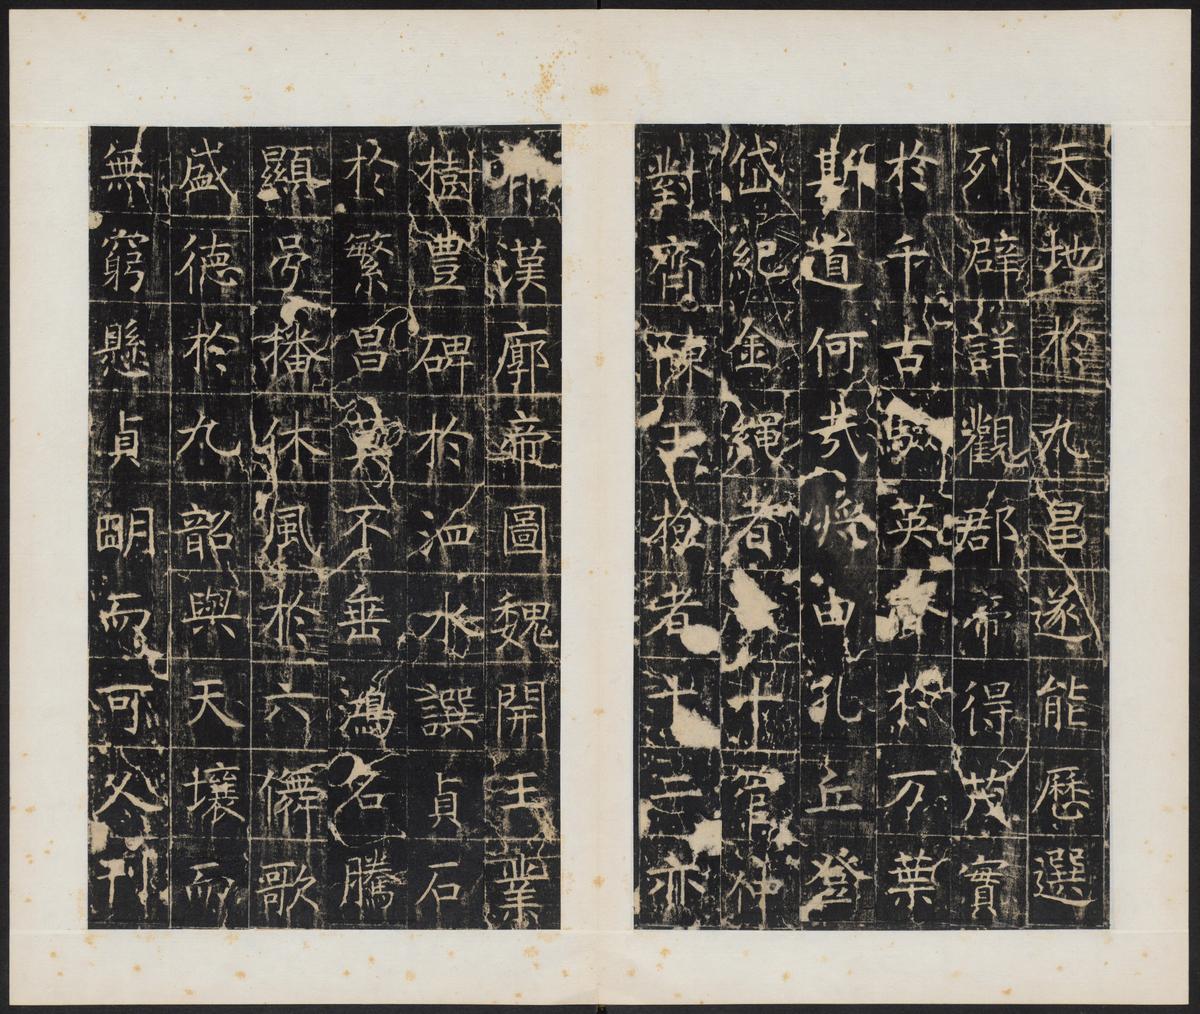 天地於九皇遂能歷選
列辟詳觀郡帝得茂實
於千古驗英聲於万葉
斯道何哉將由孔丘登
岱紀金繩者十管仲
對齊陳玉檢者十二亦
有漢廓帝圖魏開王業
樹豐碑於洫水譔貞石
於繁昌莫不垂鴻名騰
顯号播休風於六儛歌
盛德於九韶與天壤而
無窮懸貞明而可久刊